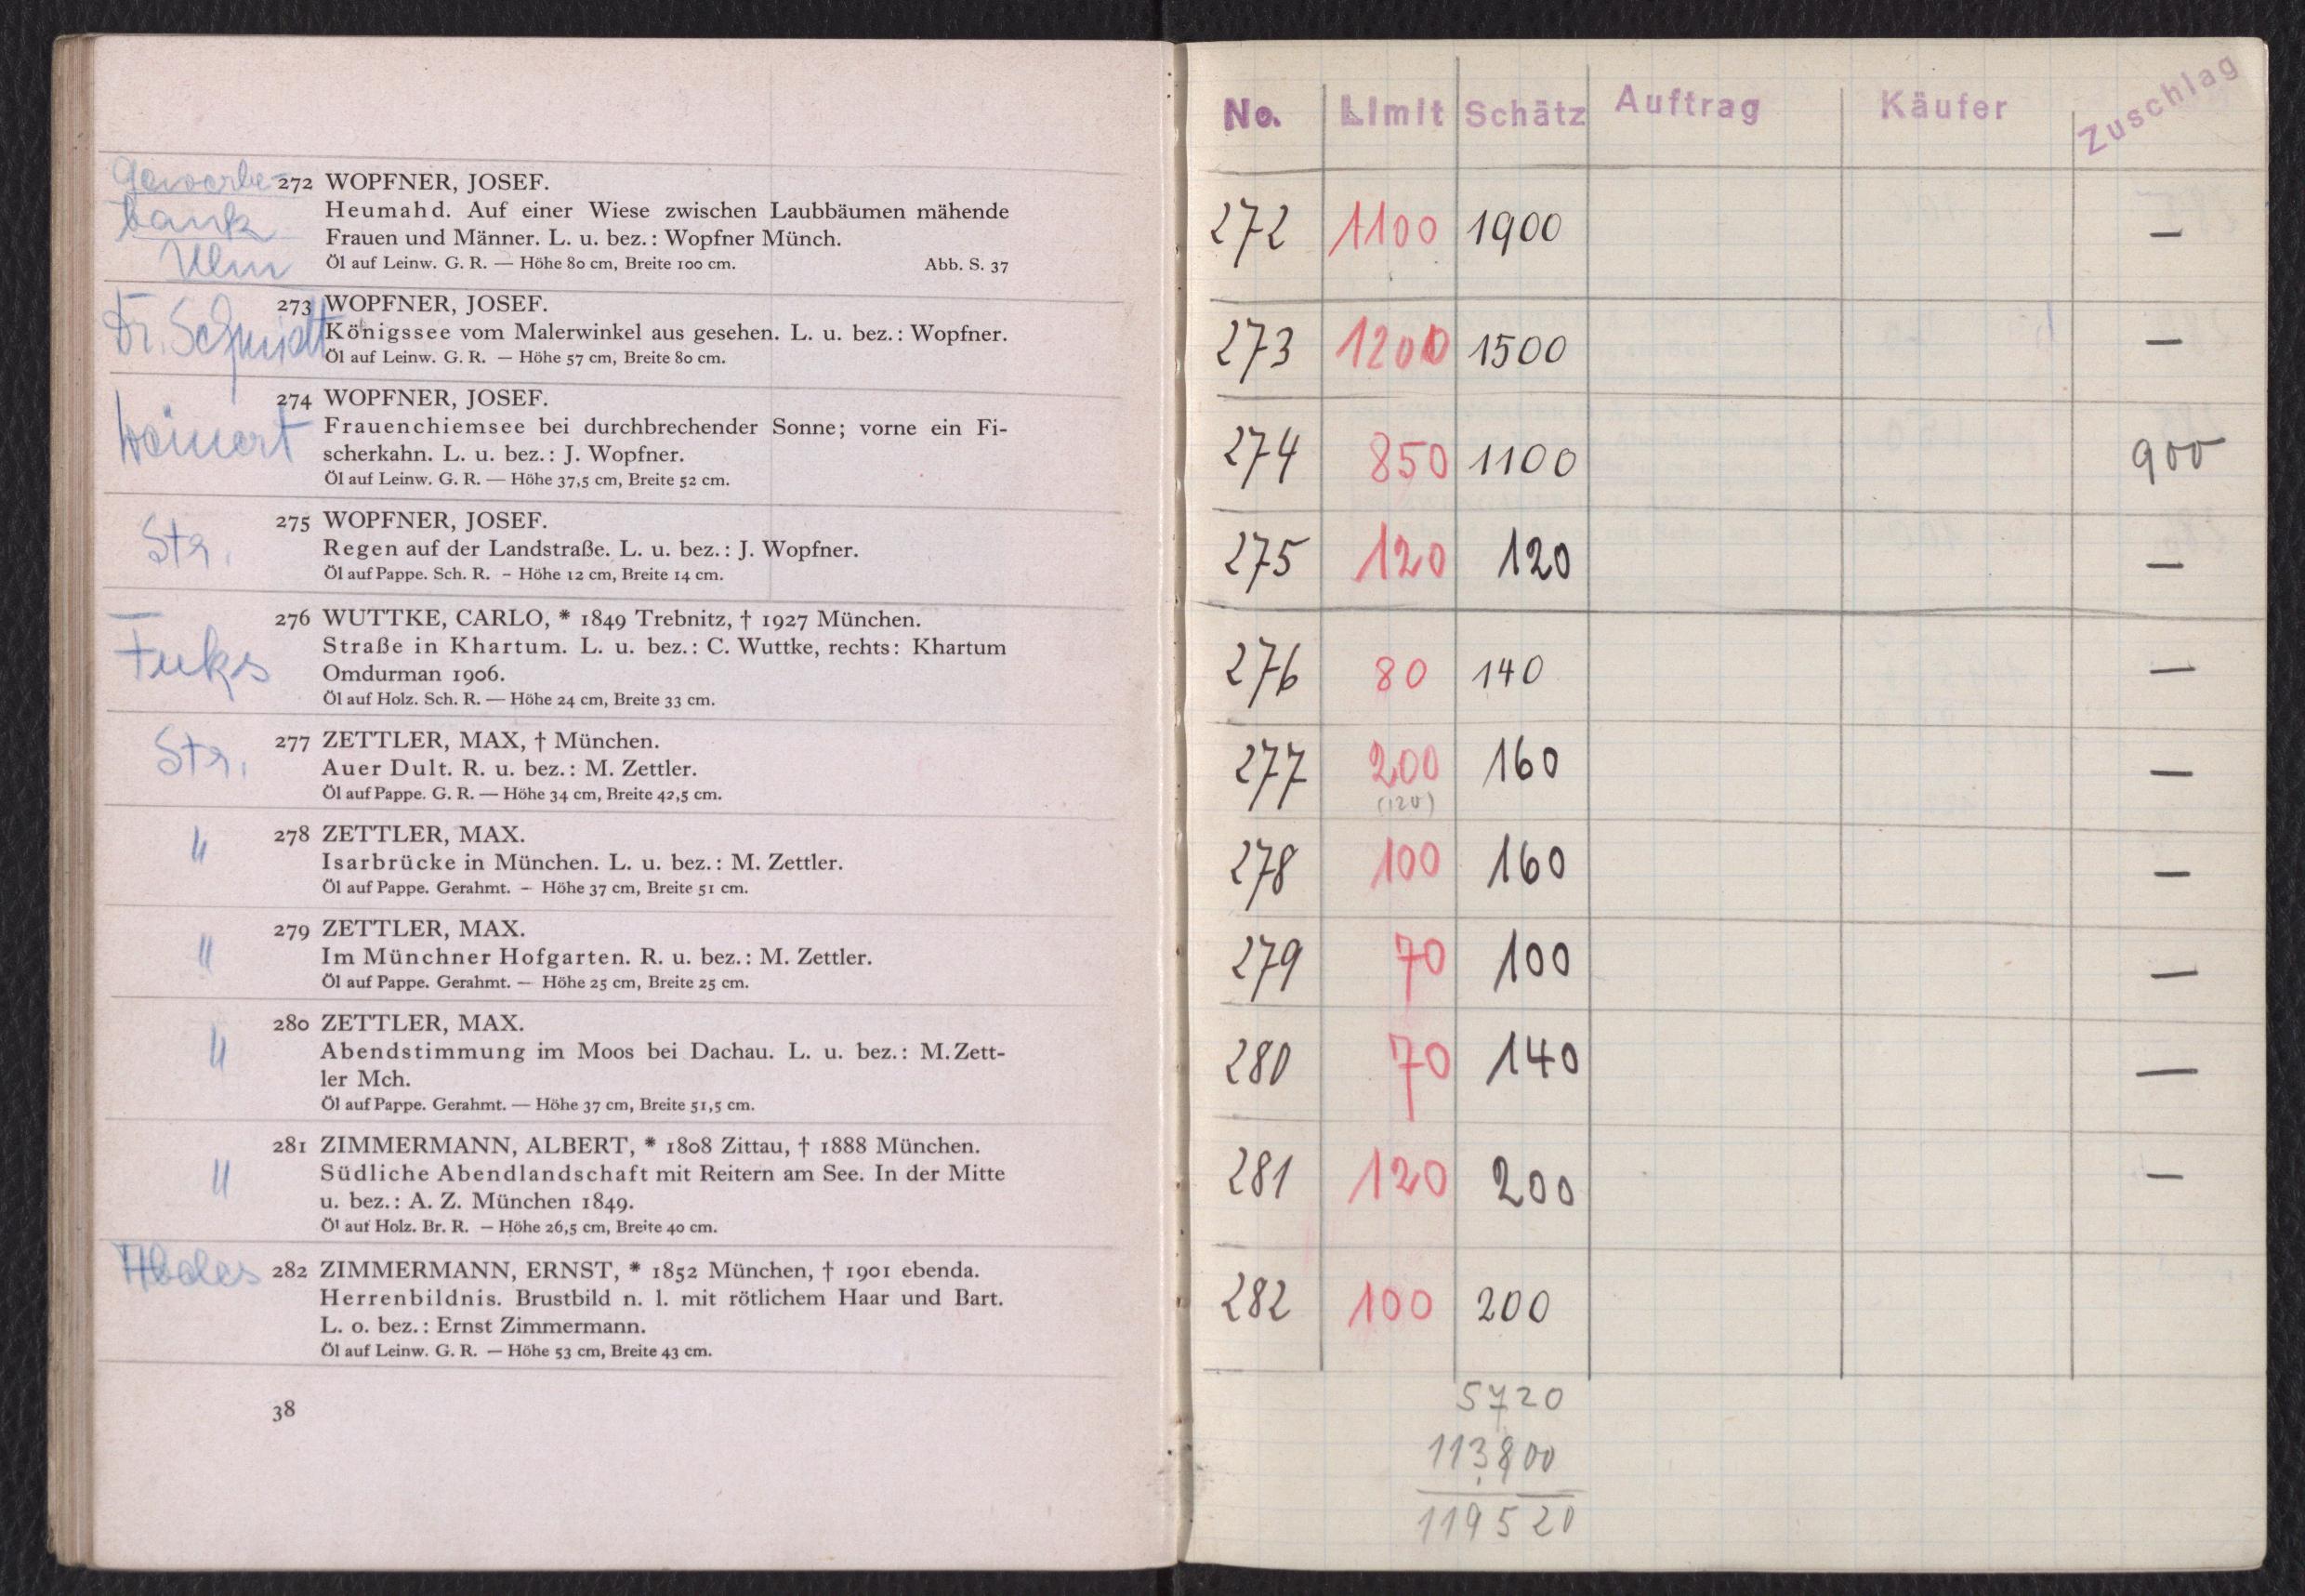 Gewerbe-
bank
Ulm
272 WOPFNER, JOSEF.
Heumahd. Auf einer Wiese zwischen Laubbäumen mähende
Frauen und Männer. L. u. bez.: Wopfner Münch.
Öl auf Leinw. G. R. — Höhe 80 cm, Breite 100 cm. Abb. S. 37
Dr. Schmidt
273 WOPFNER, JOSEF.
Königssee vom Malerwinkel aus gesehen. L. u. bez.: Wopfner.
Öl auf Leinw. G. R. — Höhe 57 cm, Breite 80 cm.
Weinert
274 WOPFNER, JOSEF.
Frauenchiemsee bei durchbrechender Sonne; vorne ein Fi-
scherkahn. L. u. bez.: J. Wopfner.
Öl auf Leinw. G. R. — Höhe 37,5 cm, Breite 52 cm.
Str.
275 WOPFNER, JOSEF.
Regen auf der Landstraße. L. u. bez.: J. Wopfner.
Öl auf Pappe. Sch. R. – Höhe 12 cm, Breite 14 cm.
Fuks
276 WUTTKE, CARLO, * 1849 Trebnitz, † 1927 München.
Straße in Khartum. L. u. bez.: C. Wuttke, rechts: Khartum
Omdurman 1906.
Öl auf Holz. Sch. R. — Höhe 24 cm, Breite 33 cm.
Str.
277 ZETTLER, MAX, † München.
Auer Dult. R. u. bez.: M. Zettler.
Öl auf Pappe. G. R. — Höhe 34 cm, Breite 42,5 cm.
"
278 ZETTLER, MAX.
Isarbrücke in München. L. u. bez.: M. Zettler.
Öl auf Pappe. Gerahmt. – Höhe 37 cm, Breite 51 cm.
"
279 ZETTLER, MAX.
Im Münchner Hofgarten. R. u. bez.: M. Zettler.
Öl auf Pappe. Gerahmt. — Höhe 25 cm, Breite 25 cm.
"
280 ZETTLER, MAX.
Abendstimmung im Moos bei Dachau. L. u. bez.: M. Zett-
ler Mch.
Öl auf Pappe. Gerahmt. — Höhe 37 cm, Breite 51,5 cm.
"
281 ZIMMERMANN, ALBERT, * 1808 Zittau, † 1888 München.
Südliche Abendlandschaft mit Reitern am See. In der Mitte
u. bez.: A. Z. München 1849.
Öl auf Holz. Br. R. — Höhe 26,5 cm, Breite 40 cm.
282 ZIMMERMANN, ERNST, * 1852 München, † 1901 ebenda.
Herrenbildnis. Brustbild n. l. mit rötlichem Haar und Bart.
L. o. bez.: Ernst Zimmermann.
Öl auf Leinw. G. R. — Höhe 53 cm, Breite 43 cm.
38
No. Limit Schätz Auftrag Käufer Zuschlag
272 1100 1900 —
273 1200 1500 —
274 850 1100 900
275 120 120 —
276 80 140 —
277 200 160 —
(120)
278 100 160 —
279 70 100 —
280 70 140 —
281 120 200 —
282 100 200
5720
113800
119520